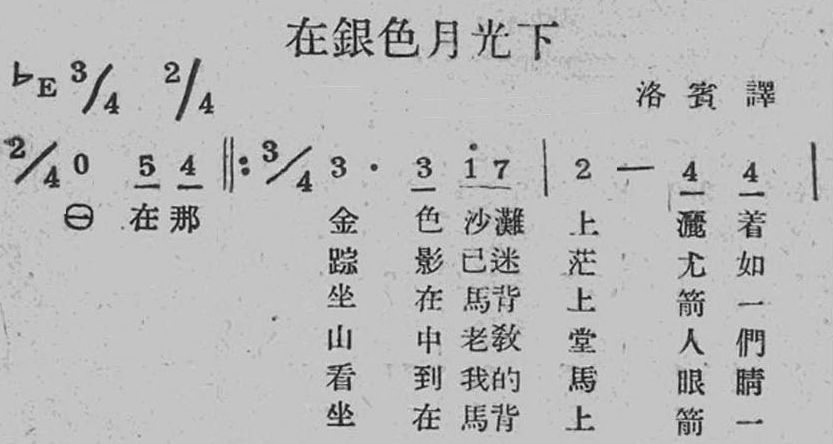 在銀色月光下
♭E 3/4 2/4
洛賓 譯
2/4 0 5 4 ‖: 3/4 3 · 3 i 7 | 2 — 4 4 |
㊀ 在那 金 色 沙灘 上 灑 着
踪 影 已迷 茫 尤 如
坐 在 馬背 上 箭 一
山 中 老教 堂 人 們
看 到 我的 馬 眼 睛
坐 在 馬背 上 箭 一